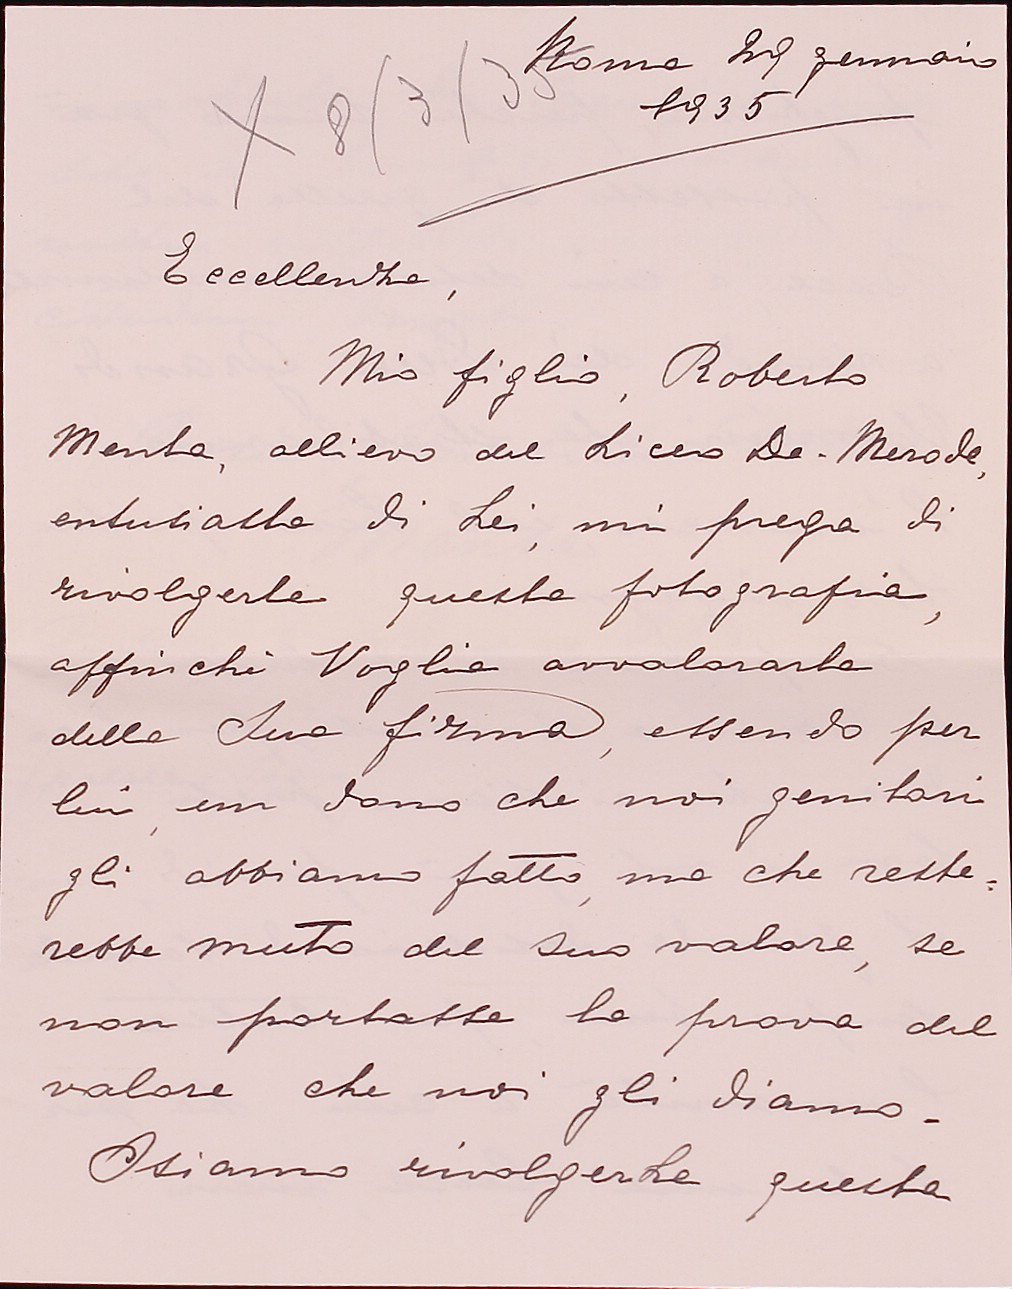 Roma 29 gennaio
1935
X 8/3/35
Eccellenza,
Mio figlio, Roberto
Menta, allievo del Liceo De-Merode,
entusiasta di Lei, mi prega di
rivolgerle questa fotografia,
affinchè Voglia avvalorarla
della Sua firma, essendo per
lui, un dono che noi genitori
gli abbiamo fatto, ma che reste=
rebbe muto del suo valore, se
non portasse la prova del
valore che noi gli diamo-
Osiamo rivolgerLe questa